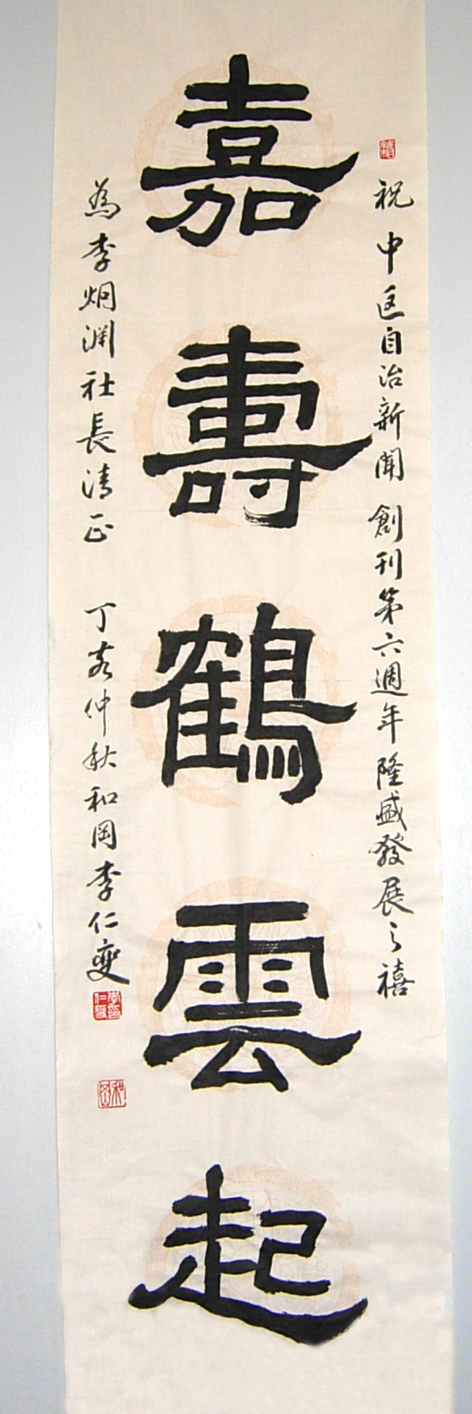 祝 中区自治新聞 創刊第六週年隆盛發展之禧
嘉壽鶴雲起
為李炯淵社長清正 丁亥仲秋和岡李仁燮
李仁燮印
和岡